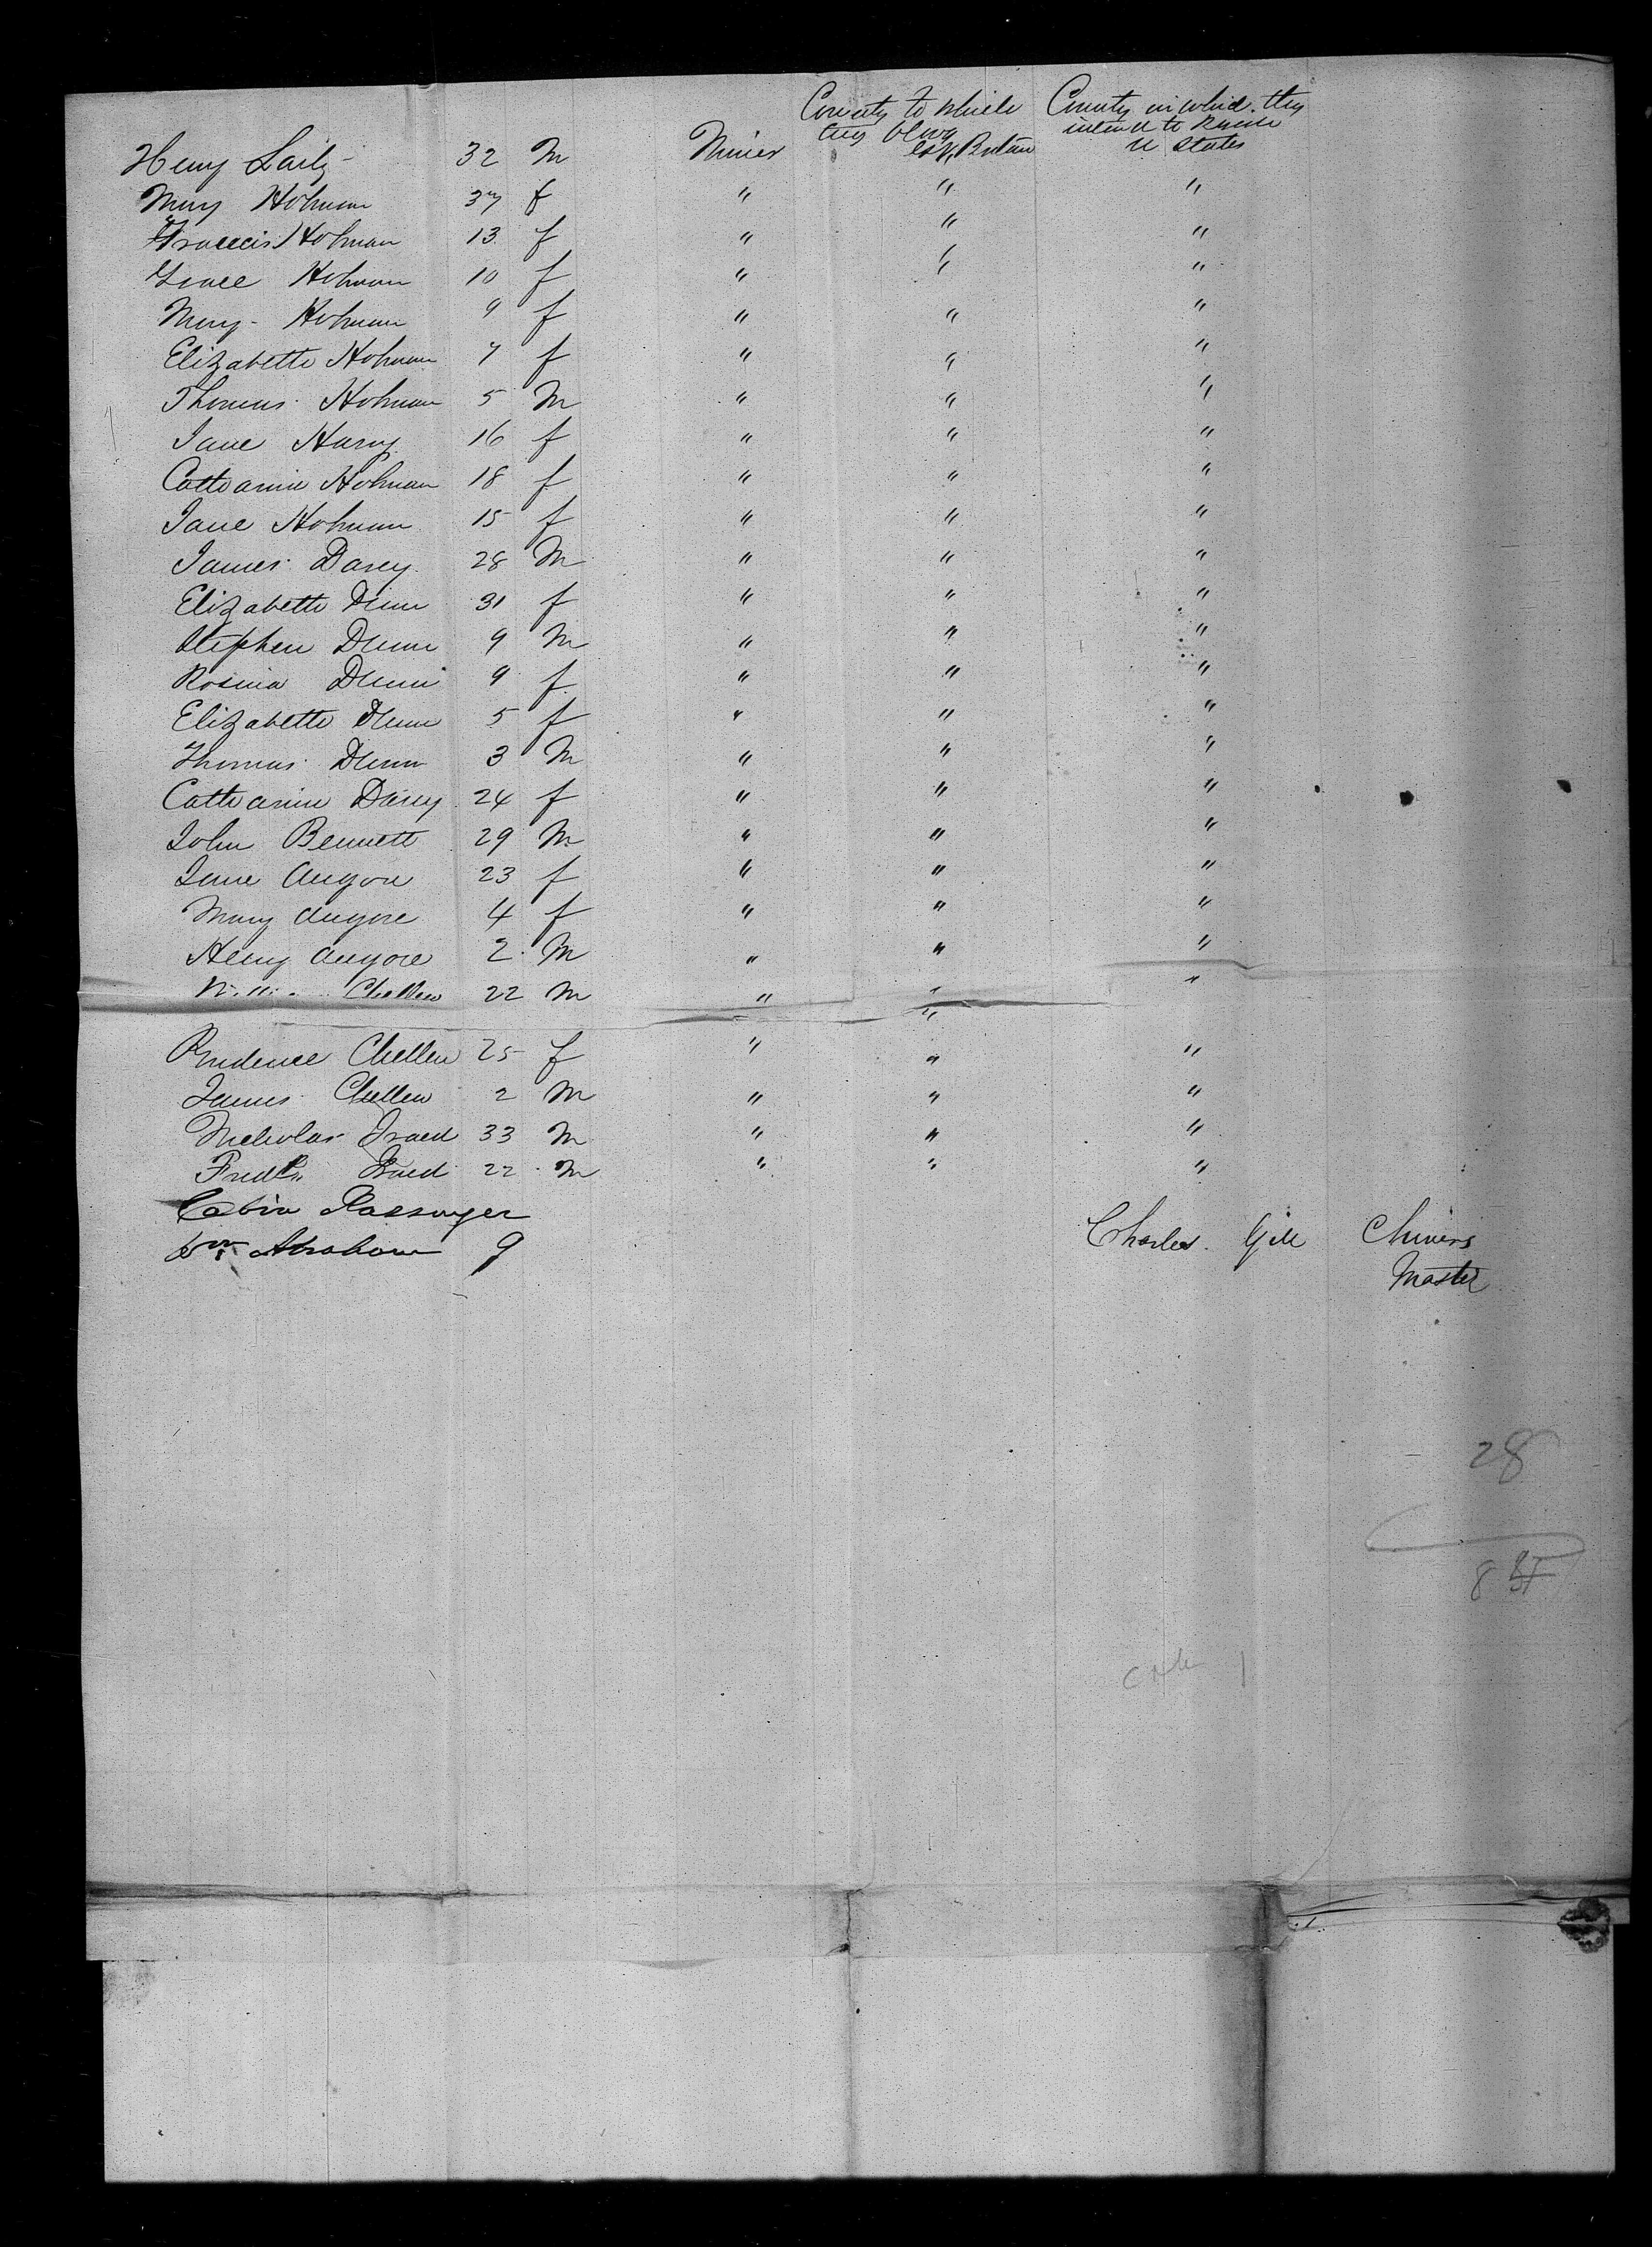 Country to which Country in which they
they blong intend to Reside
Henry Laity 32 M Miner Gt Britain U States
Mary Holman 37 f " " "
Francis Holman 13 f " " "
Grace Holman 10 f " " "
Mary Holman 9 f " " "
Elizabeth Holman 7 f " " "
Thomas Holman 5 M " " "
Jane Harry 16 f " " "
Catharine Holman 18 f " " "
Jane Holman 15 f " " "
James Darey 28 M " " "
Elizabeth Dunn 31 f " " "
Stephen Dunn 9 M " " "
Rosina Dunn 9 f " " "
Elizabeth Dunn 5 f " " "
Thomas Dunn 3 M " " "
Catharine Darey 24 f " " "
John Bennett 29 M " " "
Jane Angove 23 f " " "
Mary Angove 4 f " " "
Henry Angove 2 M " " "
Chellew 22 M " " "
Prudence Chellew 25 f " " "
James Chellew 2 M " " "
Nicholas 33 M " " "
22 M " " "
Cabin Passenger
Wm Abraham 9 Charles Gill Chivers
Master
28
8